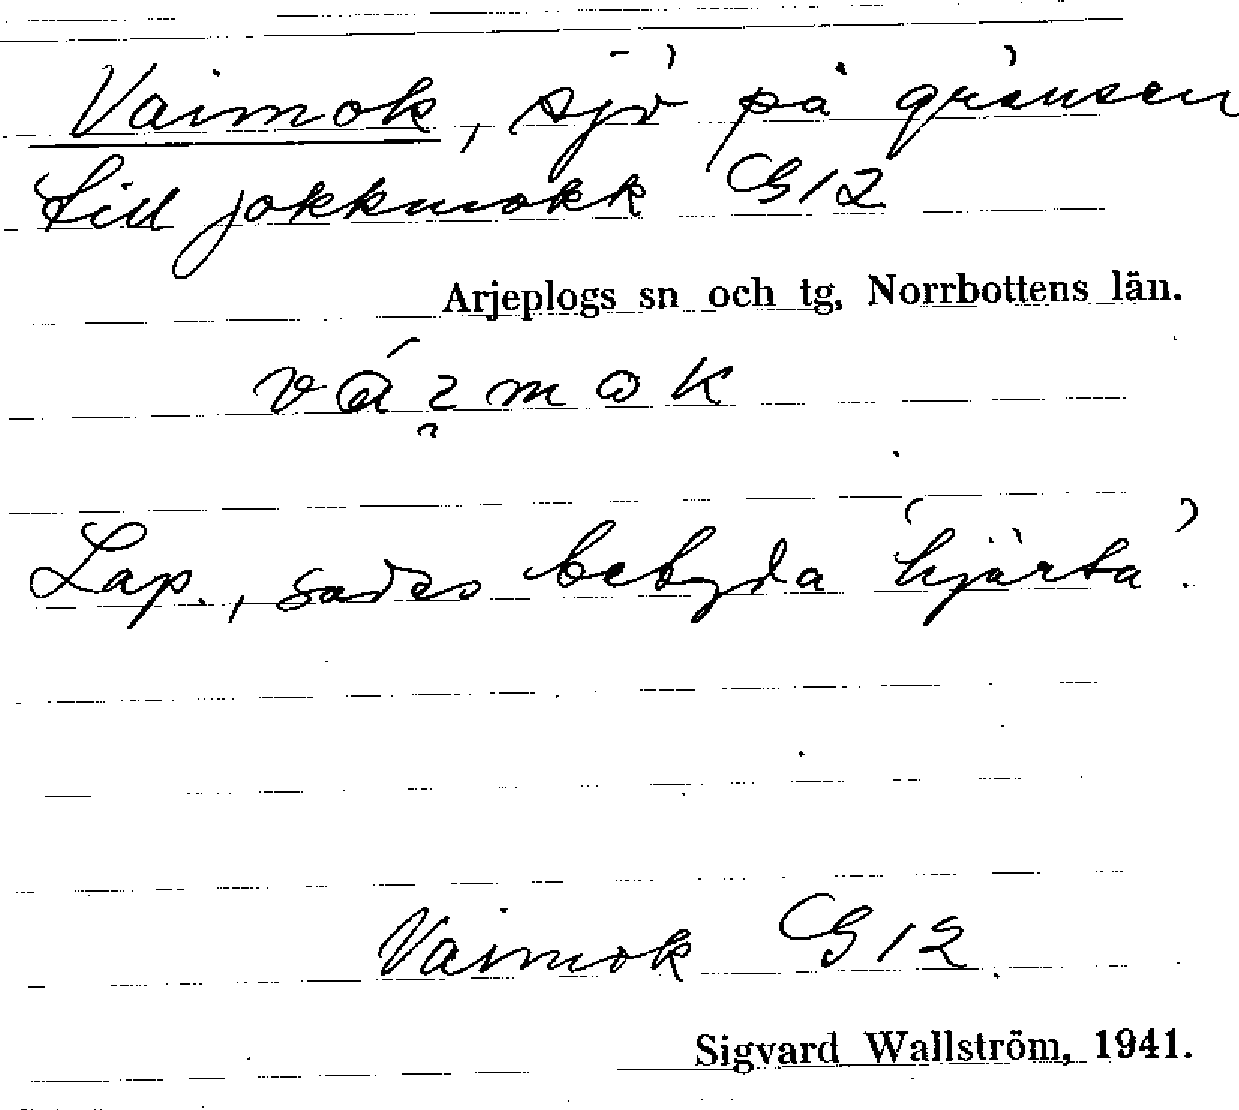 Vaimok, sjö på gränsen
till Jokkmokk G12
Arjeplogs sn och tg, Norrbottens län.
Lap., sades betyda 'hjärta'.
Vaimok G12
Sigvard Wallström, 1941.